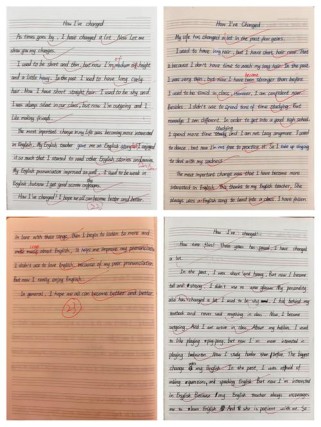 How I've changed
As times goes by, I have changed a lot. Now let me
show you my changes.
I used to be short and thin, but now I'm medium of height
and a little heavy. In the past I used to have long curly
hair. Now I have short straight hair. I used to be shy and
I was always silent in our class, but now I'm outgoing and I
like making friends.
The most important change in my life was becoming more interested
in English. My English teacher gave me an English story. I enjoyed
it so much that I started to read other English stories
My English pronunciation improved as well, it used to be weak in
English, but now I get good scores
How I've changed! I hope we all can become better and better.
How I've Changed
My life has changed a lot in the past few years.
I used to have long hair, but I have short hair now. That
is because I don't have time to wash my long hair. In the past,
I was very thin, but now I have become stronger than before.
I used to be timid in class. However, I am confident now.
Besides, I didn't use to spend time of time studying. But
nowadays I am different. In order to get into a good high school,
I spend more time study and I am not lazy anymore. I used
to dance, but now I'm free to practice it. So I take up singing
to deal with my sadness.
The most important change now that I have become more
interested in English. This thanks to my English teacher. She
always uses English song to lead into a class. I have
In love with these songs, then I begin to listen to more and
about English, it helps me improve my pronunciation.
I didn't use to love English, because of my poor pronunciation.
But now I really enjoy English.
In general, I hope we all can become better and better.
21
How I've changed!
How time flies! three years has passed, I have changed
a lot.
In the past, I was short and young, But now I become
tall and strong. I didn't use to wear glasses. My personality
also has changed a lot. I used to be shy and I
and never said anything in class. Now I become
outgoing. And I am active in class. About my hobbies, I used
to like playing ping-pong, but now I'm more interested in
playing badminton. Now I study harder than before. The biggest
change my English. In the past, I was afraid of
making and speaking English. But now I'm interested
in English because my English teacher always encourages
me to learn English. And who is patient with me. So